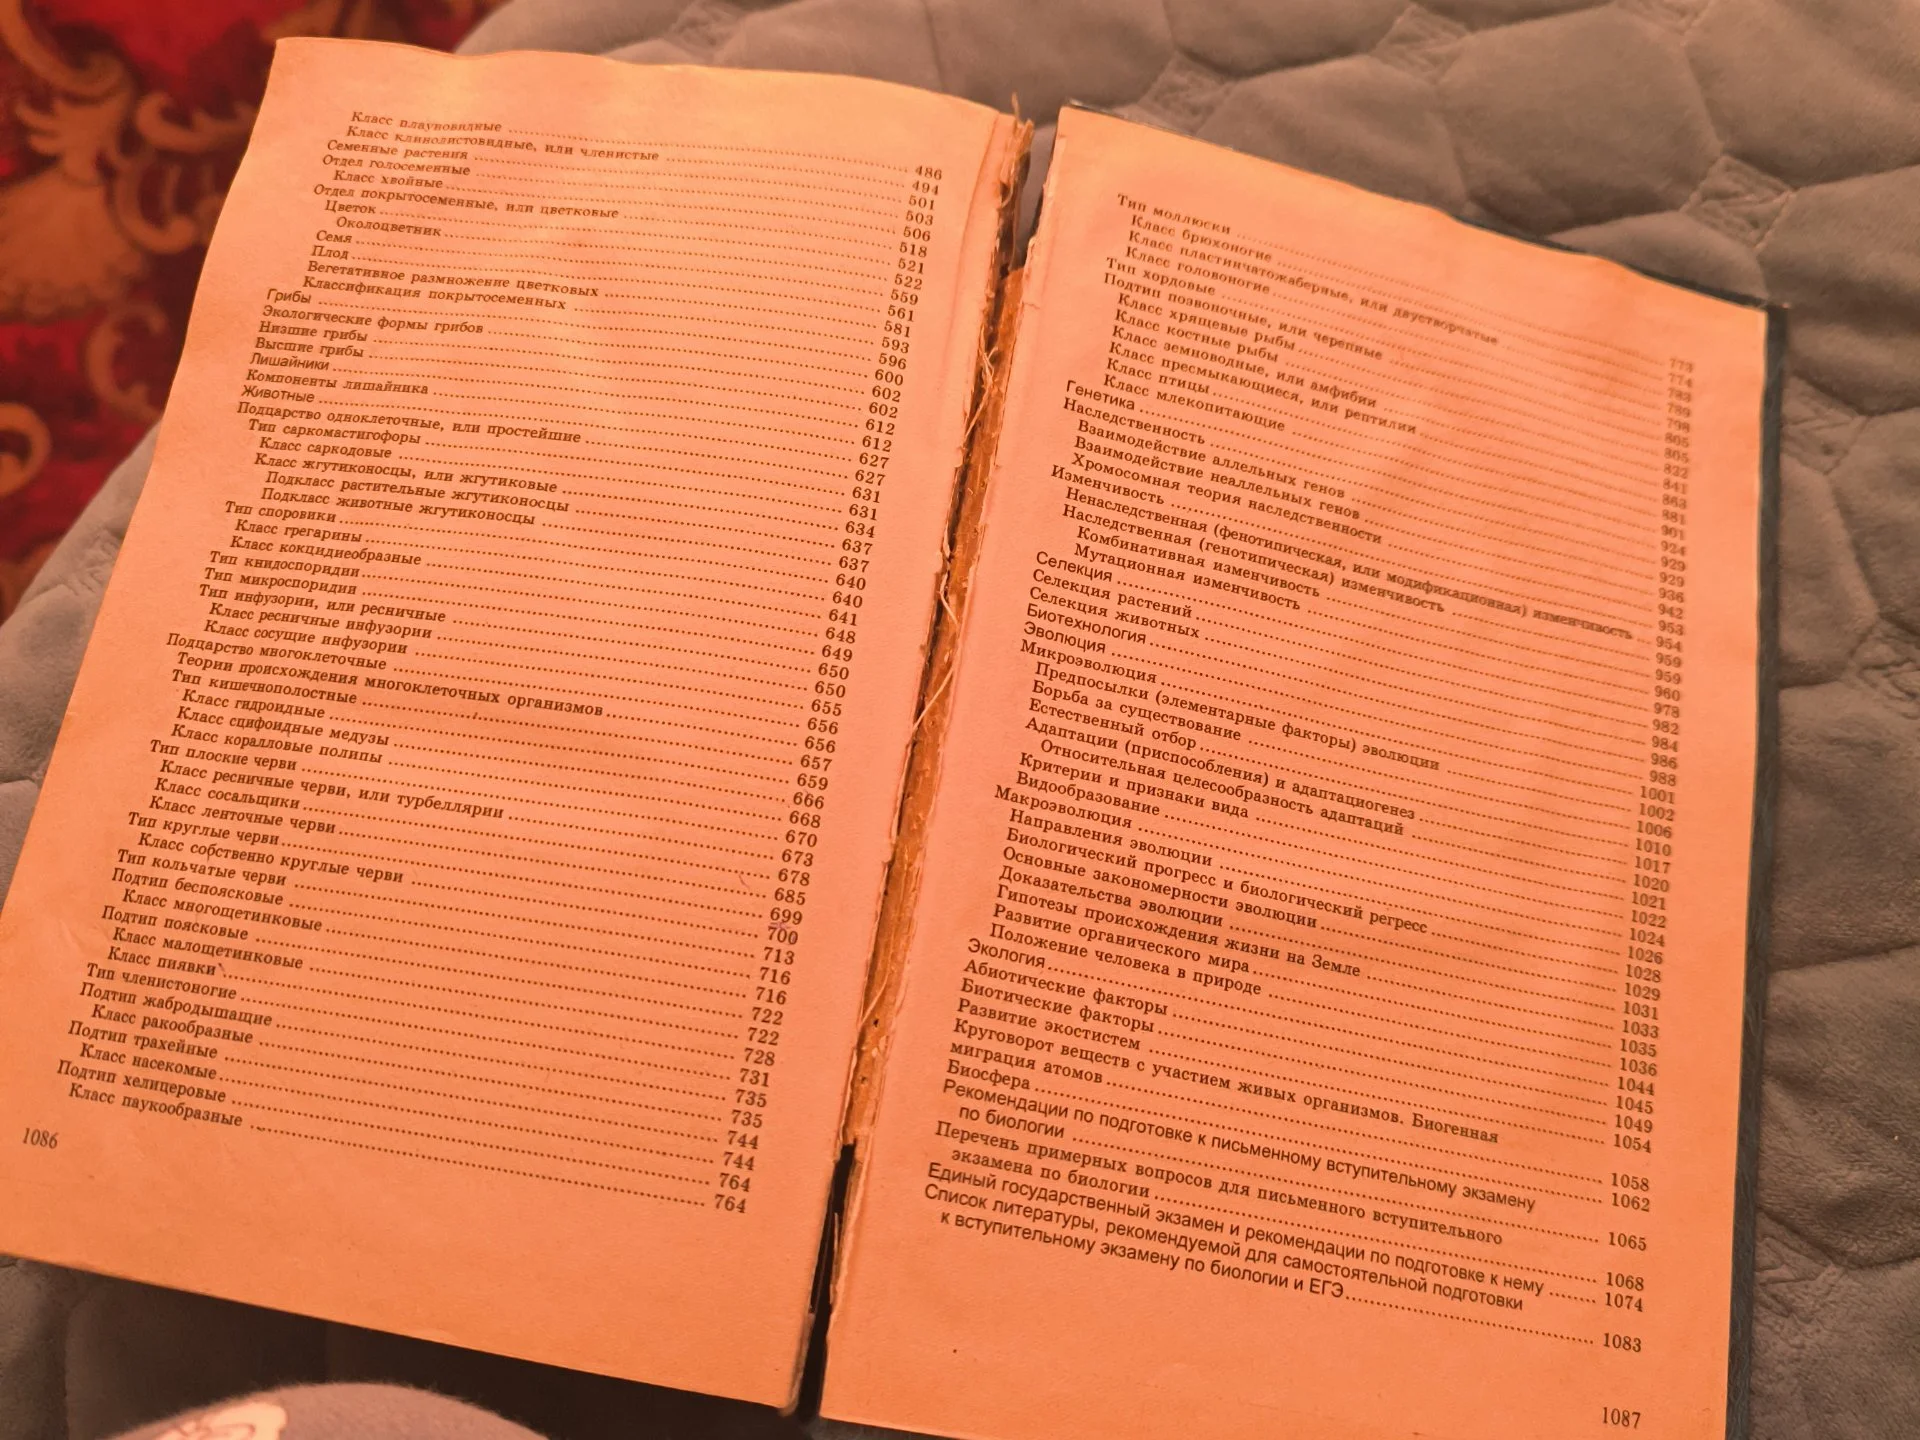 Класс плауновидные ........ 486
Класс клинолистовидные, или членистые ........ 494
Семенные растения ........ 501
Отдел голосеменные ........ 503
Класс хвойные ........ 506
Отдел покрытосеменные, или цветковые ........ 518
Цветок ........ 521
Околоцветник ........ 522
Семя ........ 559
Плод ........ 561
Вегетативное размножение цветковых ........ 581
Классификация покрытосеменных ........ 593
Грибы ........ 596
Экологические формы грибов ........ 600
Низшие грибы ........ 602
Высшие грибы ........ 602
Лишайники ........ 612
Компоненты лишайника ........ 612
Животные ........ 627
Подцарство одноклеточные, или простейшие ........ 627
Тип саркомастигофоры ........ 631
Класс саркодовые ........ 631
Класс жгутиконосцы, или жгутиковые ........ 634
Подкласс растительные жгутиконосцы ........ 637
Подкласс животные жгутиконосцы ........ 637
Тип споровики ........ 640
Класс грегарины ........ 640
Класс кокцидиеобразные ........ 641
Тип книдоспоридии ........ 648
Тип микроспоридии ........ 649
Тип инфузории, или ресничные ........ 650
Класс ресничные инфузории ........ 650
Класс сосущие инфузории ........ 655
Подцарство многоклеточные ........ 656
Теории происхождения многоклеточных организмов ........ 656
Тип кишечнополостные ........ 657
Класс гидроидные ........ 659
Класс сцифоидные медузы ........ 666
Класс коралловые полипы ........ 668
Тип плоские черви ........ 670
Класс ресничные черви, или турбеллярии ........ 673
Класс сосальщики ........ 678
Класс ленточные черви ........ 685
Тип круглые черви ........ 699
Класс собственно круглые черви ........ 700
Тип кольчатые черви ........ 713
Подтип беспоясковые ........ 716
Класс многощетинковые ........ 716
Подтип поясковые ........ 722
Класс малощетинковые ........ 722
Класс пиявки ........ 728
Тип членистоногие ........ 731
Подтип жабродышащие ........ 735
Класс ракообразные ........ 735
Подтип трахейные ........ 744
Класс насекомые ........ 744
Подтип хелицеровые ........ 764
Класс паукообразные ........ 764
1086
Тип моллюски ........ 773
Класс брюхоногие ........ 774
Класс пластинчатожаберные, или двустворчатые ........ 783
Класс головоногие ........ 789
Тип хордовые ........ 798
Подтип позвоночные, или черепные ........ 805
Класс хрящевые рыбы ........ 805
Класс костные рыбы ........ 822
Класс земноводные, или амфибии ........ 841
Класс пресмыкающиеся, или рептилии ........ 863
Класс птицы ........ 881
Класс млекопитающие ........ 901
Генетика ........ 924
Наследственность ........ 929
Взаимодействие аллельных генов ........ 929
Взаимодействие неаллельных генов ........ 936
Хромосомная теория наследственности ........ 942
Изменчивость ........ 953
Ненаследственная (фенотипическая, или модификационная) изменчивость ........ 954
Наследственная (генотипическая) изменчивость ........ 959
Комбинативная изменчивость ........ 959
Мутационная изменчивость ........ 960
Селекция ........ 978
Селекция растений ........ 982
Селекция животных ........ 984
Биотехнология ........ 986
Эволюция ........ 988
Микроэволюция ........ 1001
Предпосылки (элементарные факторы) эволюции ........ 1002
Борьба за существование ........ 1006
Естественный отбор ........ 1010
Адаптации (приспособления) и адаптациогенез ........ 1017
Относительная целесообразность адаптаций ........ 1020
Критерии и признаки вида ........ 1021
Видообразование ........ 1022
Макроэволюция ........ 1024
Направления эволюции ........ 1026
Биологический прогресс и биологический регресс ........ 1028
Основные закономерности эволюции ........ 1029
Доказательства эволюции ........ 1031
Гипотезы происхождения жизни на Земле ........ 1033
Развитие органического мира ........ 1035
Положение человека в природе ........ 1036
Экология ........ 1044
Абиотические факторы ........ 1045
Биотические факторы ........ 1049
Развитие экостистем ........ 1054
Круговорот веществ с участием живых организмов. Биогенная
миграция атомов ........ 1058
Биосфера ........ 1062
Рекомендации по подготовке к письменному вступительному экзамену
по биологии ........ 1065
Перечень примерных вопросов для письменного вступительного
экзамена по биологии ........ 1068
Единый государственный экзамен и рекомендации по подготовке к нему ........ 1074
Список литературы, рекомендуемой для самостоятельной подготовки
к вступительному экзамену по биологии и ЕГЭ ........ 1083
1087